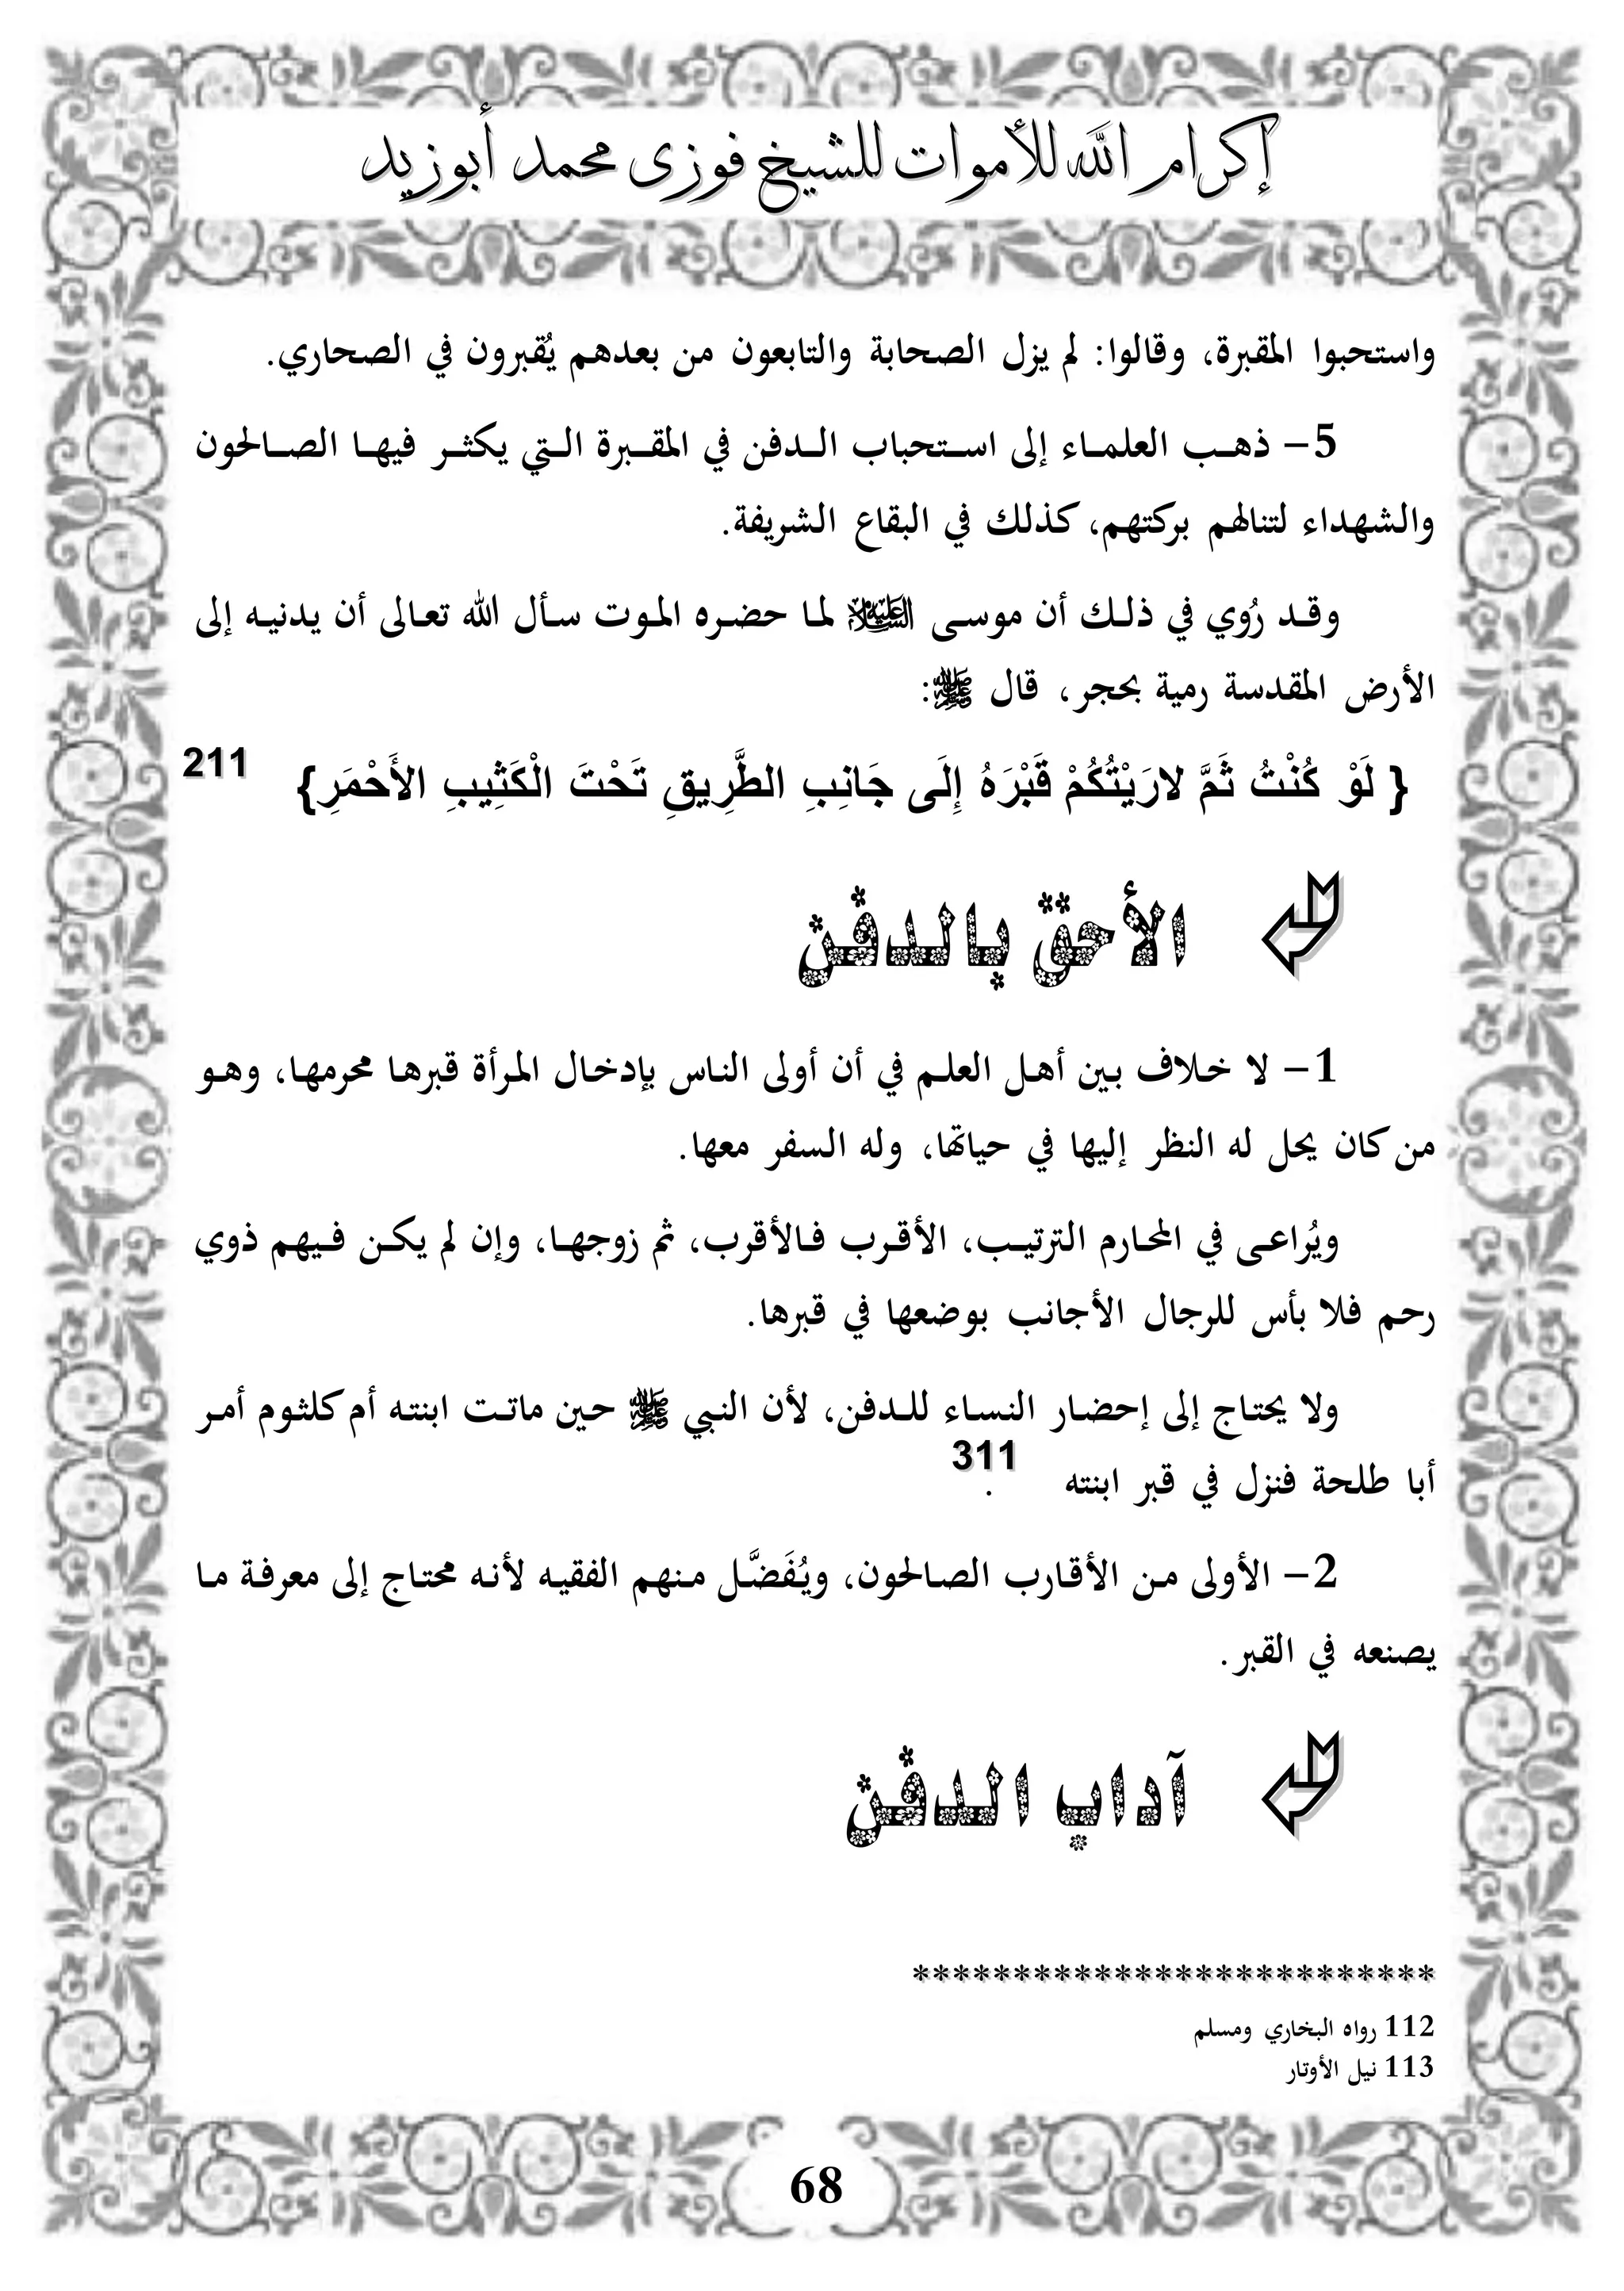 إكرام الله للأموات للشيخ فوزى محمد أبوزيد
واستحبوا المقبرة، وقالوا: لم يزل الصحابة والتابعون من بعدهم يُقبرون في الصحاري.
5- ذهب العلماء إلى استحباب الدفن في المقبرة التي يكثر فيها الصالحون
والشهداء لتنالهم بركتهم، كذلك في البقاع الشريفة.
وقد رُوي في ذلك أن موسى عليه السلام لما حضره الموت سأل الله تعالى أن يدنيه إلى
الأرض المقدسة رمية بحجر، قال ﷺ:
{ لَوْ كُنْتُ ثَمَّ لارَيْتُكُمْ قَبْرَهُ إِلَى جَانِبِ الطَّرِيقِ تَحْتَ الْكَثِيبِ الأَحْمَرِ} 211
الأحق بالدفن
1- لا خلاف بين أهل العلم في أن أولى الناس بإدخال المرأة قبرها محرمها، وهو
من كان يحل له النظر إليها في حياتها، وله السفر معها.
ويُراعى في المحارم الترتيب، الأقرب فالأقرب، ثم زوجها، وإن لم يكن فيهم ذوي
رحم فلا بأس للرجال الأجانب بوضعها في قبرها.
ولا يحتاج إلى إحضار النساء للدفن، لأن النبي ﷺ حين ماتت ابنته أم كلثوم أمر
أبا طلحة فنزل في قبر ابنته 311.
2- الأولى من الأقارب الصالحون، ويُفَضَّل منهم الفقيه لأنه محتاج إلى معرفة ما
يصنعه في القبر.
آداب الدفن
**************************
112 رواه البخاري ومسلم
113 نيل الأوتار
68